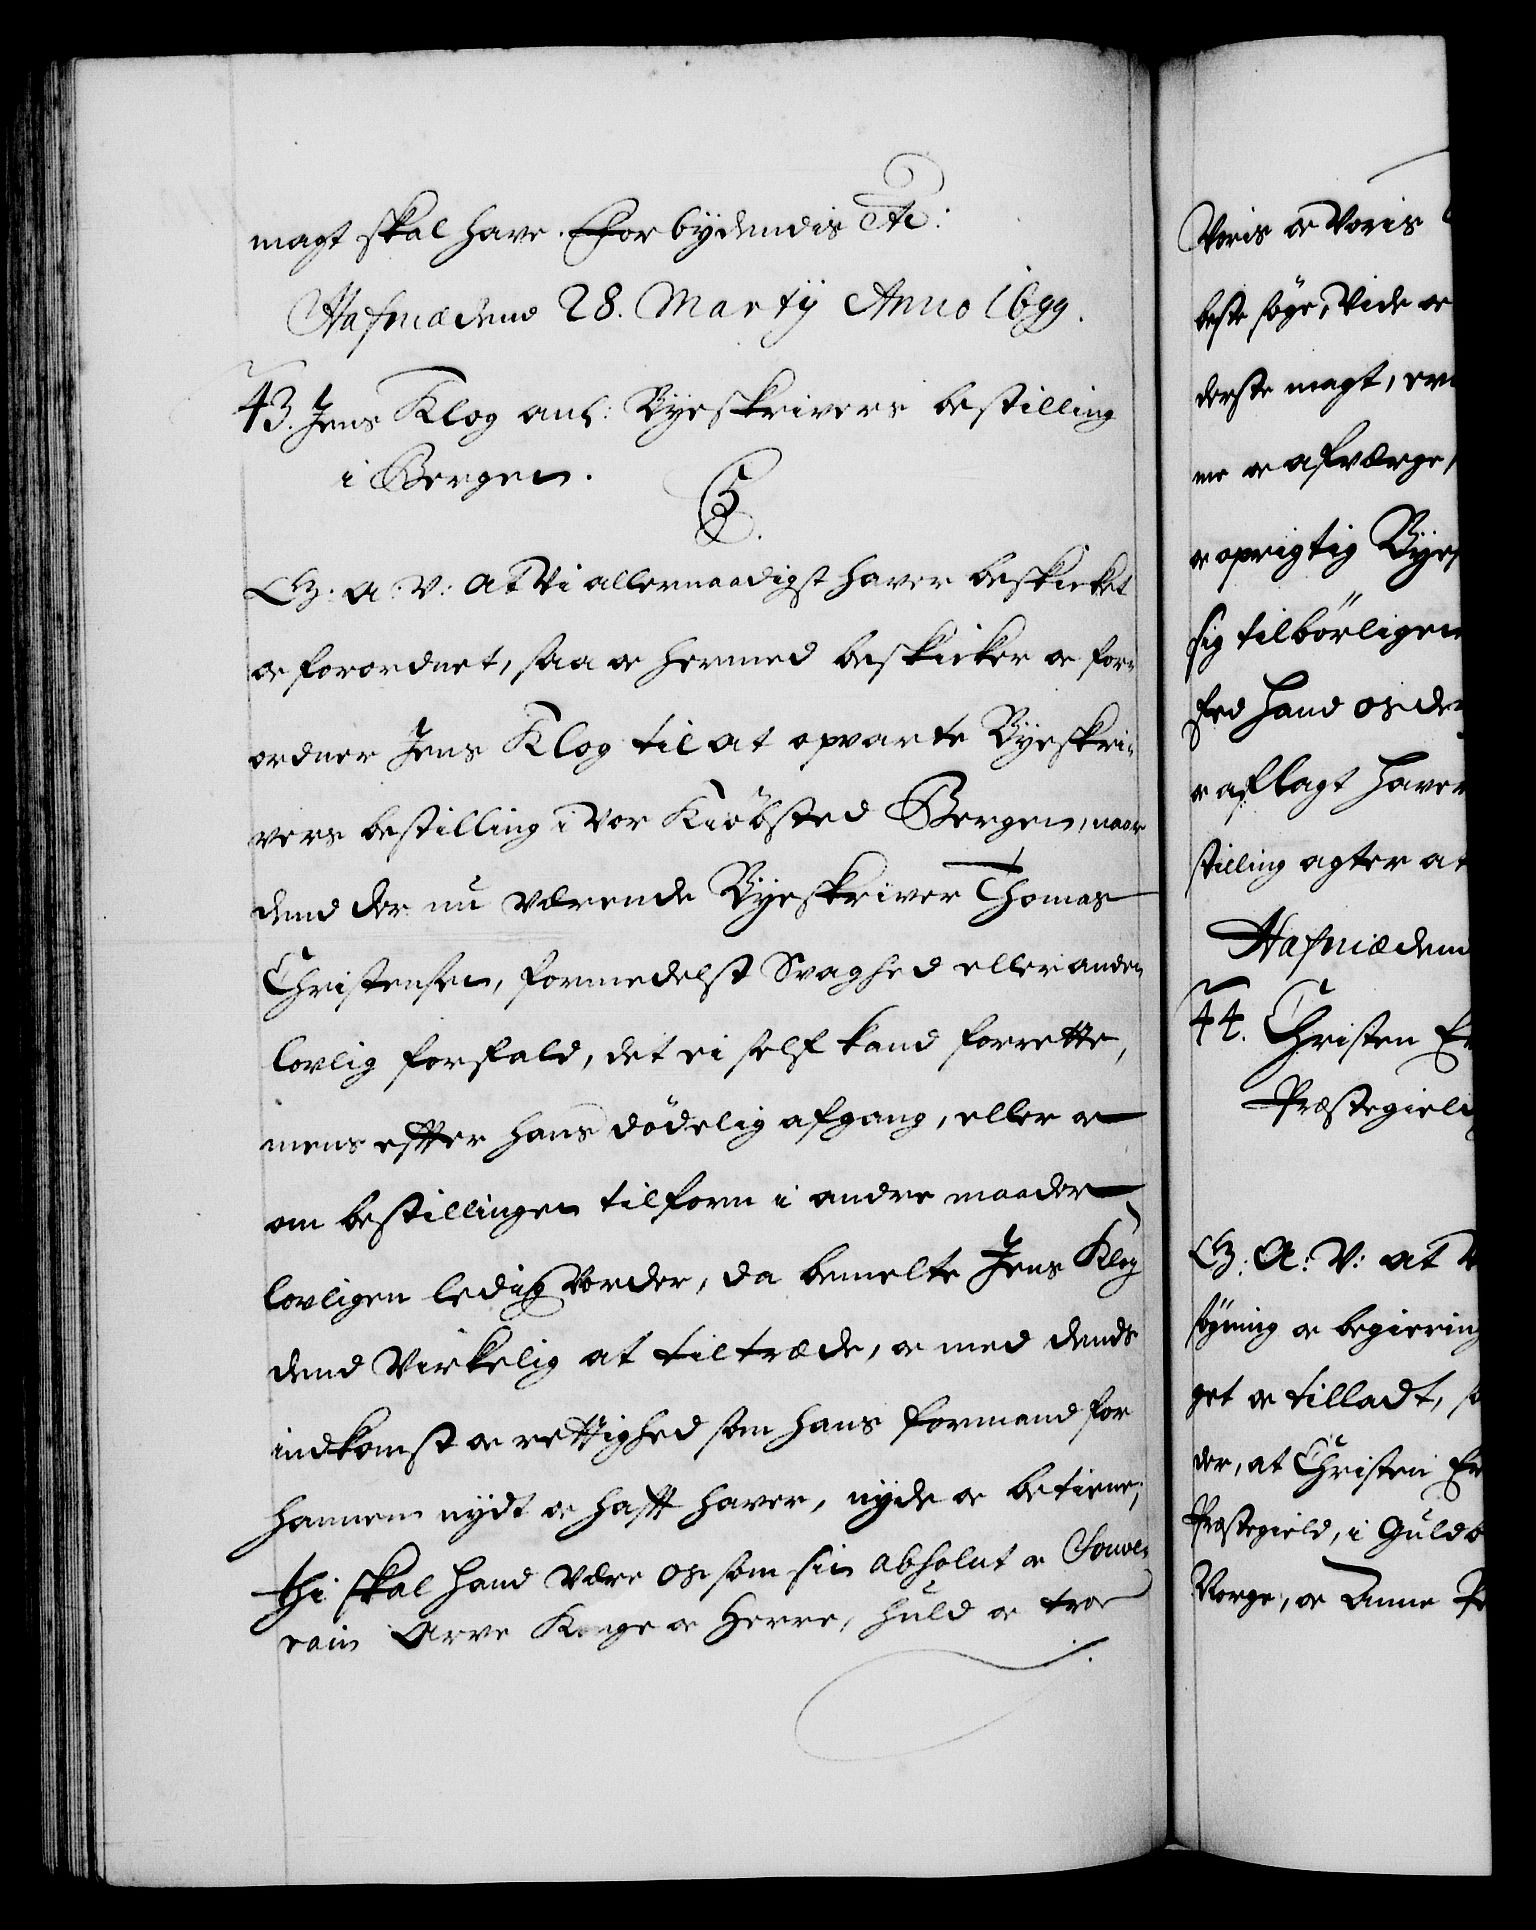 magt skal have. Forbydendis etc:
Hafniæ dend 28. Martij Anno 1699.
43. Jens Klog anl: Byeskrivers bestilling
i Bergen.
C5.
G: A: V: At Vi allernaadigst haver beskicket
oc forordnet, saa oc hermed beskicker oc for-
ordner Jens Klog til at opvarte Byeskri-
vers bestilling i Vor Kiöbsted Bergen, naar
dend der nu værende Byeskriver Thomas
Christensen, formedelst Svaghed eller anden
lovlig forfald, det ei self kand forrette,
mens effter hans dödelig afgang, eller oc
om bestillingen tilforn i andre maader
lovligen ledig Vorder, da bemelte Jens Klog
dend Virkelig at tiltræde, oc med dends
indkomst oc rettighed som hans formand for
hannem nydt oc hafft haver, nyde oc betiene;
thi skal hand være os som sin absolut oc Souve-
rain Arve Konge oc Herre, huld oc troe
Voris oc Voris
beste söge, Vide oc
derste magt, ev
me oc afværge,
oc oprigtig Byes
sig tilbörligen
Eed hand os der
oc aflagt haver
stilling agter at
Hafniæ dend
44. Christen Er
Præstegield
G: A: V: at V
søgning oc begiering
get oc tilladt, sa
der, at Christen Er
Præstegield, i Guldb
Norge, oc Anne P